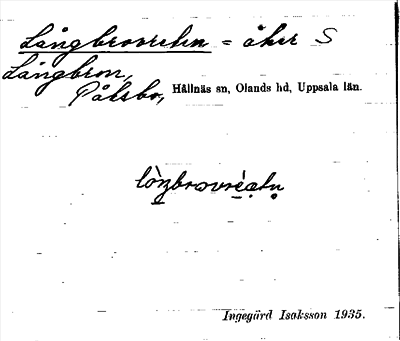 Långbrovreten = åker S
Långbron,
Pålsbo, Hållnäs sn, Olands hd, Uppsala län.
Ingegärd Isaksson 1935.